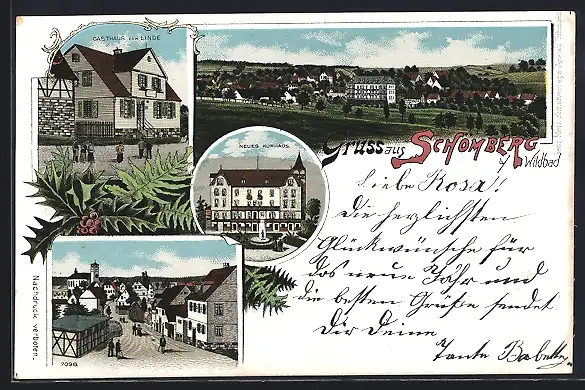 GASTHAUS ZUR LINDE
NEUES KURHAUS.
Gruss aus SCHÖMBERG
b/ Wildbad
Liebe Rosa!
Die herzlichsten
Glückwünsche für
das neue Jahr und
die besten Grüße sendet
Dir Deine
Tante Babette
Nachdruck verboten.
7098